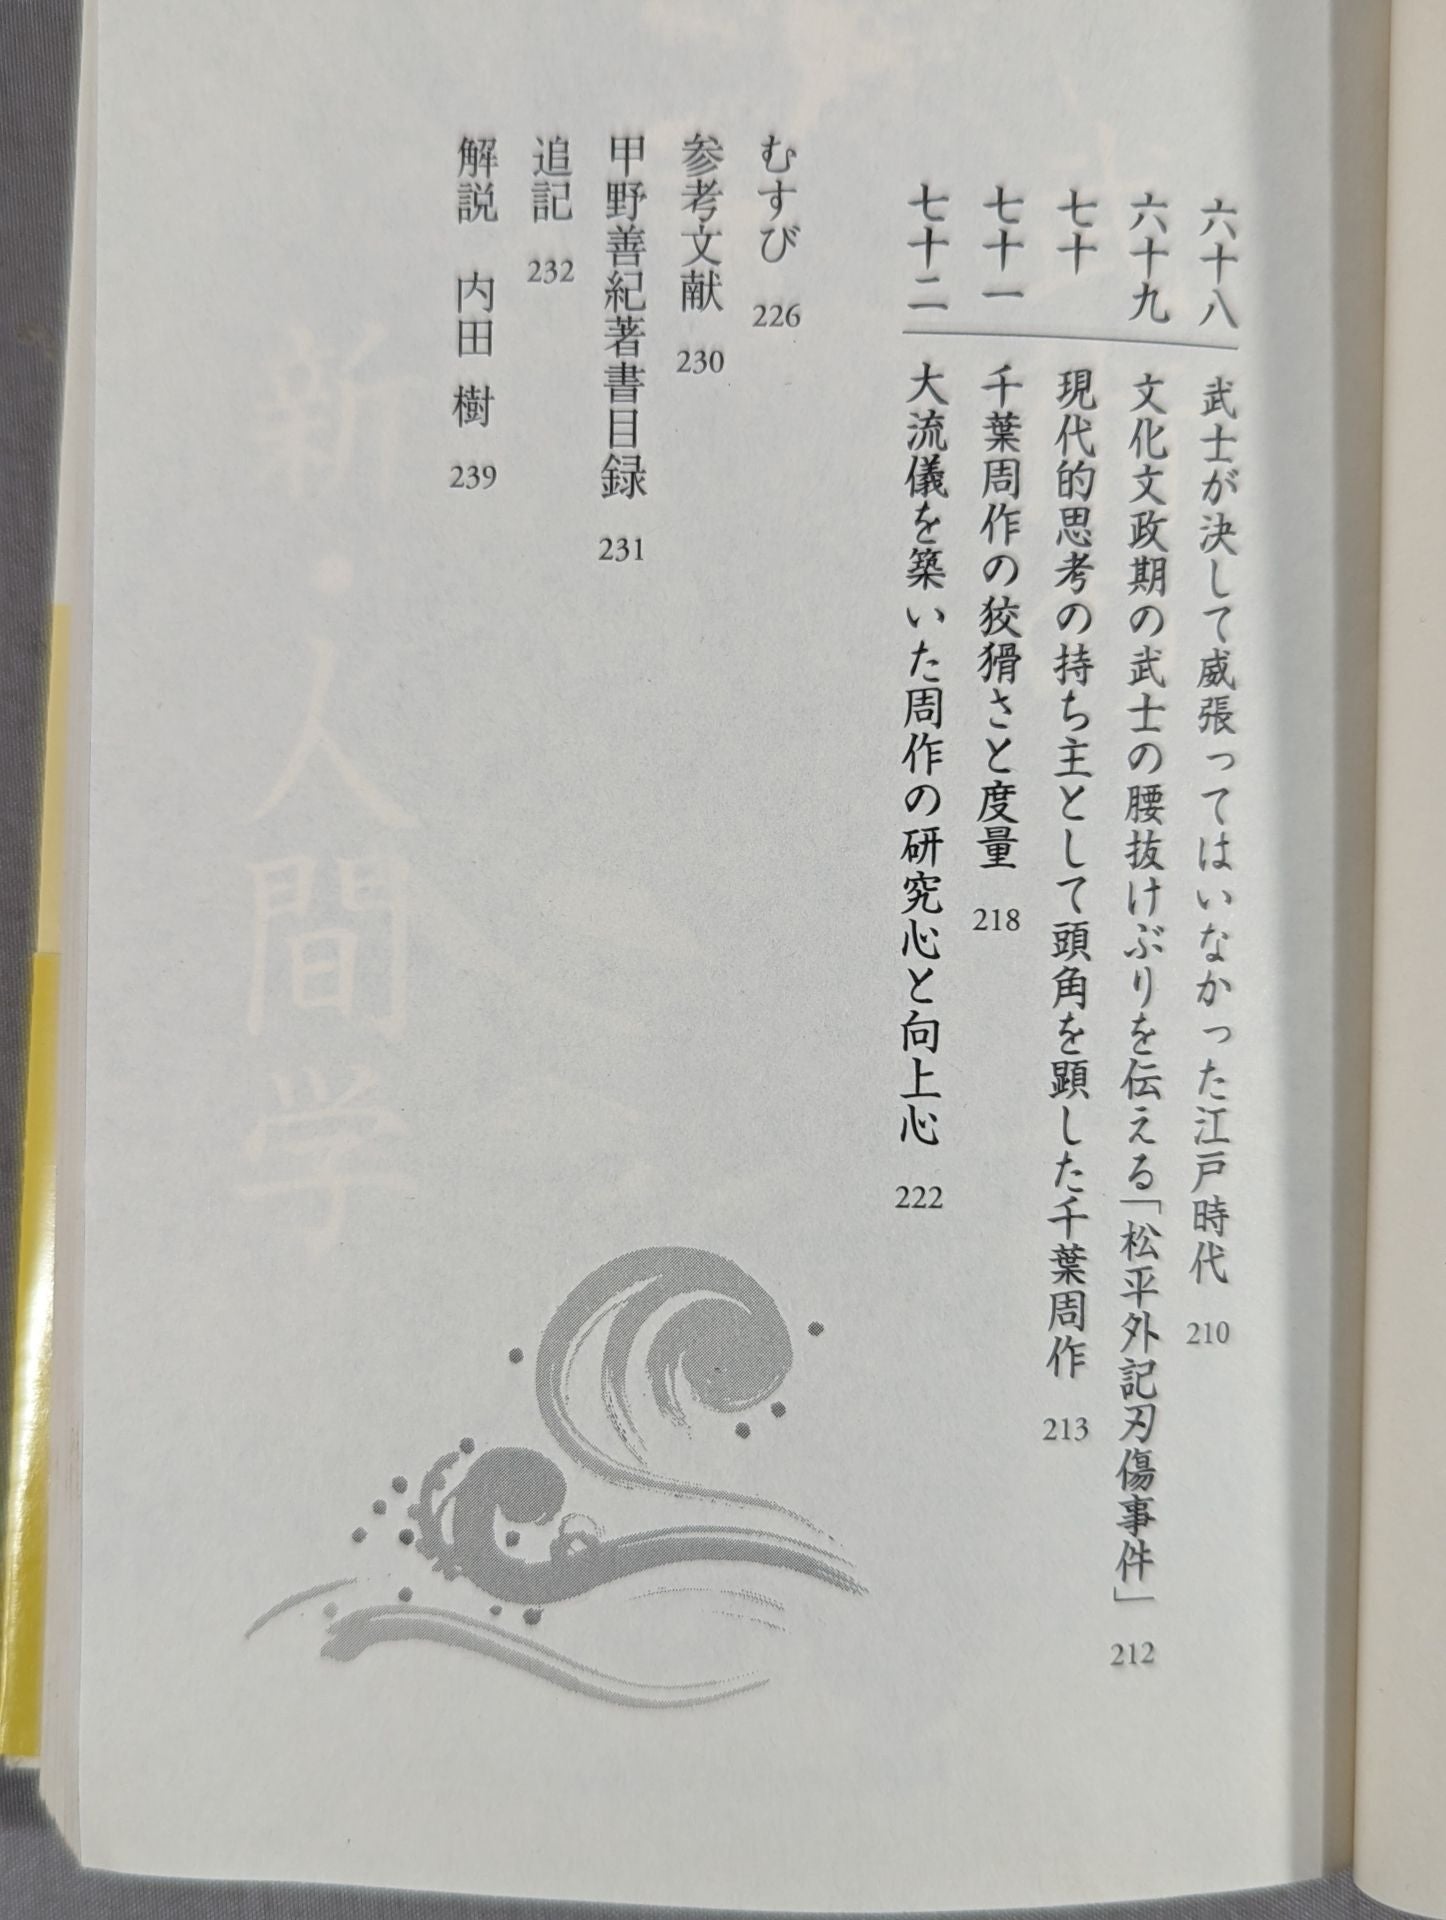 六十八 武士が決して威張ってはいなかった江戸時代 210
六十九 文化文政期の武士の腰抜けぶりを伝える「松平外記刃傷事件」 212
七十 現代的思考の持ち主として頭角を顕した千葉周作 213
七十一 千葉周作の狡猾さと度量 218
七十二 大流儀を築いた周作の研究心と向上心 222
むすび 226
参考文献 230
甲野善紀著書目録 231
追記 232
解説 内田 樹 239
新・人間学